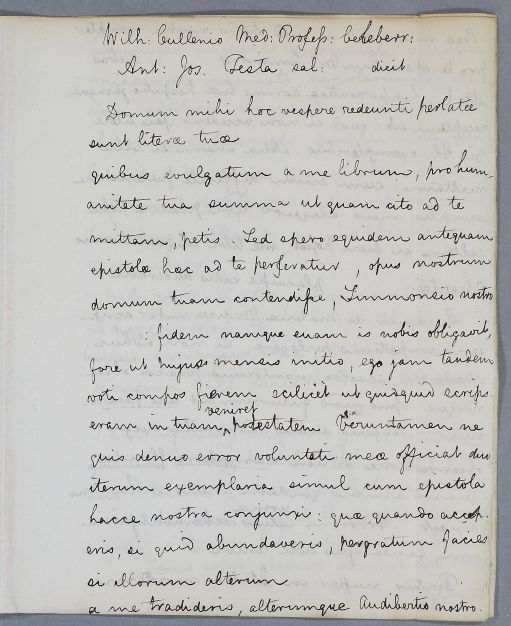 Wilh: Cullenio Med: Profess: Celeberr:
Ant: Jos. Testa sal: dicit
Domum mihi hoc vespere redeunti perlatæ
sunt literæ tuæ
quibus evulgatum a me librum, pro hum-
anitate tua summa ut quam cito ad te
mittam, petis. Sed spero equidem antequam
epistola hæc ad te perferatur, opus nostrum
domum tuam contendisse, Simmonsio nostro
: fidem namque suam is nobis obligavit,
fore ut hujus mensis initio, ego jam tandem
voti compos fierem scilicet ut quidquid scrips-
eram in tuam veniret potestatem Veruntamen ne
quis denuo error voluntati meæ officiat duo
iterum exemplaria simul cum epistola
hacce nostra conjunxi: quæ quando accep-
eris, si quid abundaveris, pergratum facies
si illorum alterum
a me tradideris, alterumque Audibertio nostro.